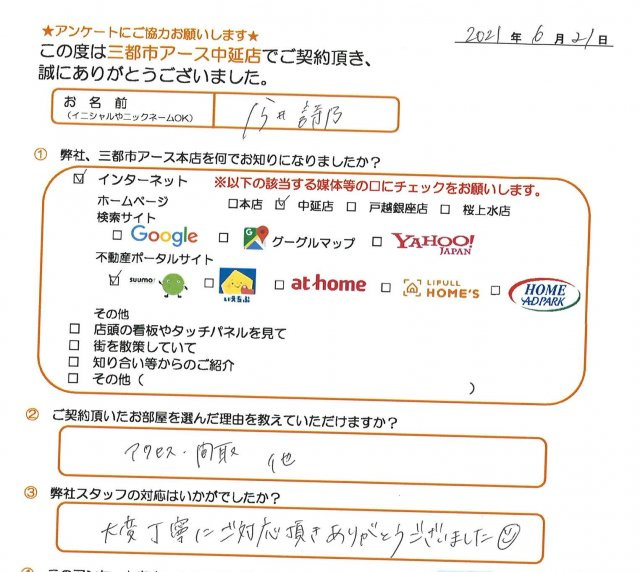 ★アンケートにご協力お願いします★
2021年6月21日
この度は三都市アース中延店でご契約頂き、
誠にありがとうございました。
お名前
(イニシャルやニックネームOK)
① 弊社、三都市アース本店を何でお知りになりましたか?
☑ インターネット ※以下の該当する媒体等の□にチェックをお願いします。
ホームページ □本店 ☑ 中延店 □ 戸越銀座店 □ 桜上水店
検索サイト
□ Google □ グーグルマップ □ YAHOO! JAPAN
不動産ポータルサイト
☑ suumo □ いえらぶ □ at home □ LIFULL HOME'S □ HOME ADPARK
その他
□ 店頭の看板やタッチパネルを見て
□ 街を散策していて
□ 知り合い等からのご紹介
□ その他( )
② ご契約頂いたお部屋を選んだ理由を教えていただけますか?
アクセス・間取 他
③ 弊社スタッフの対応はいかがでしたか?
大変丁寧にご対応頂きありがとうございました